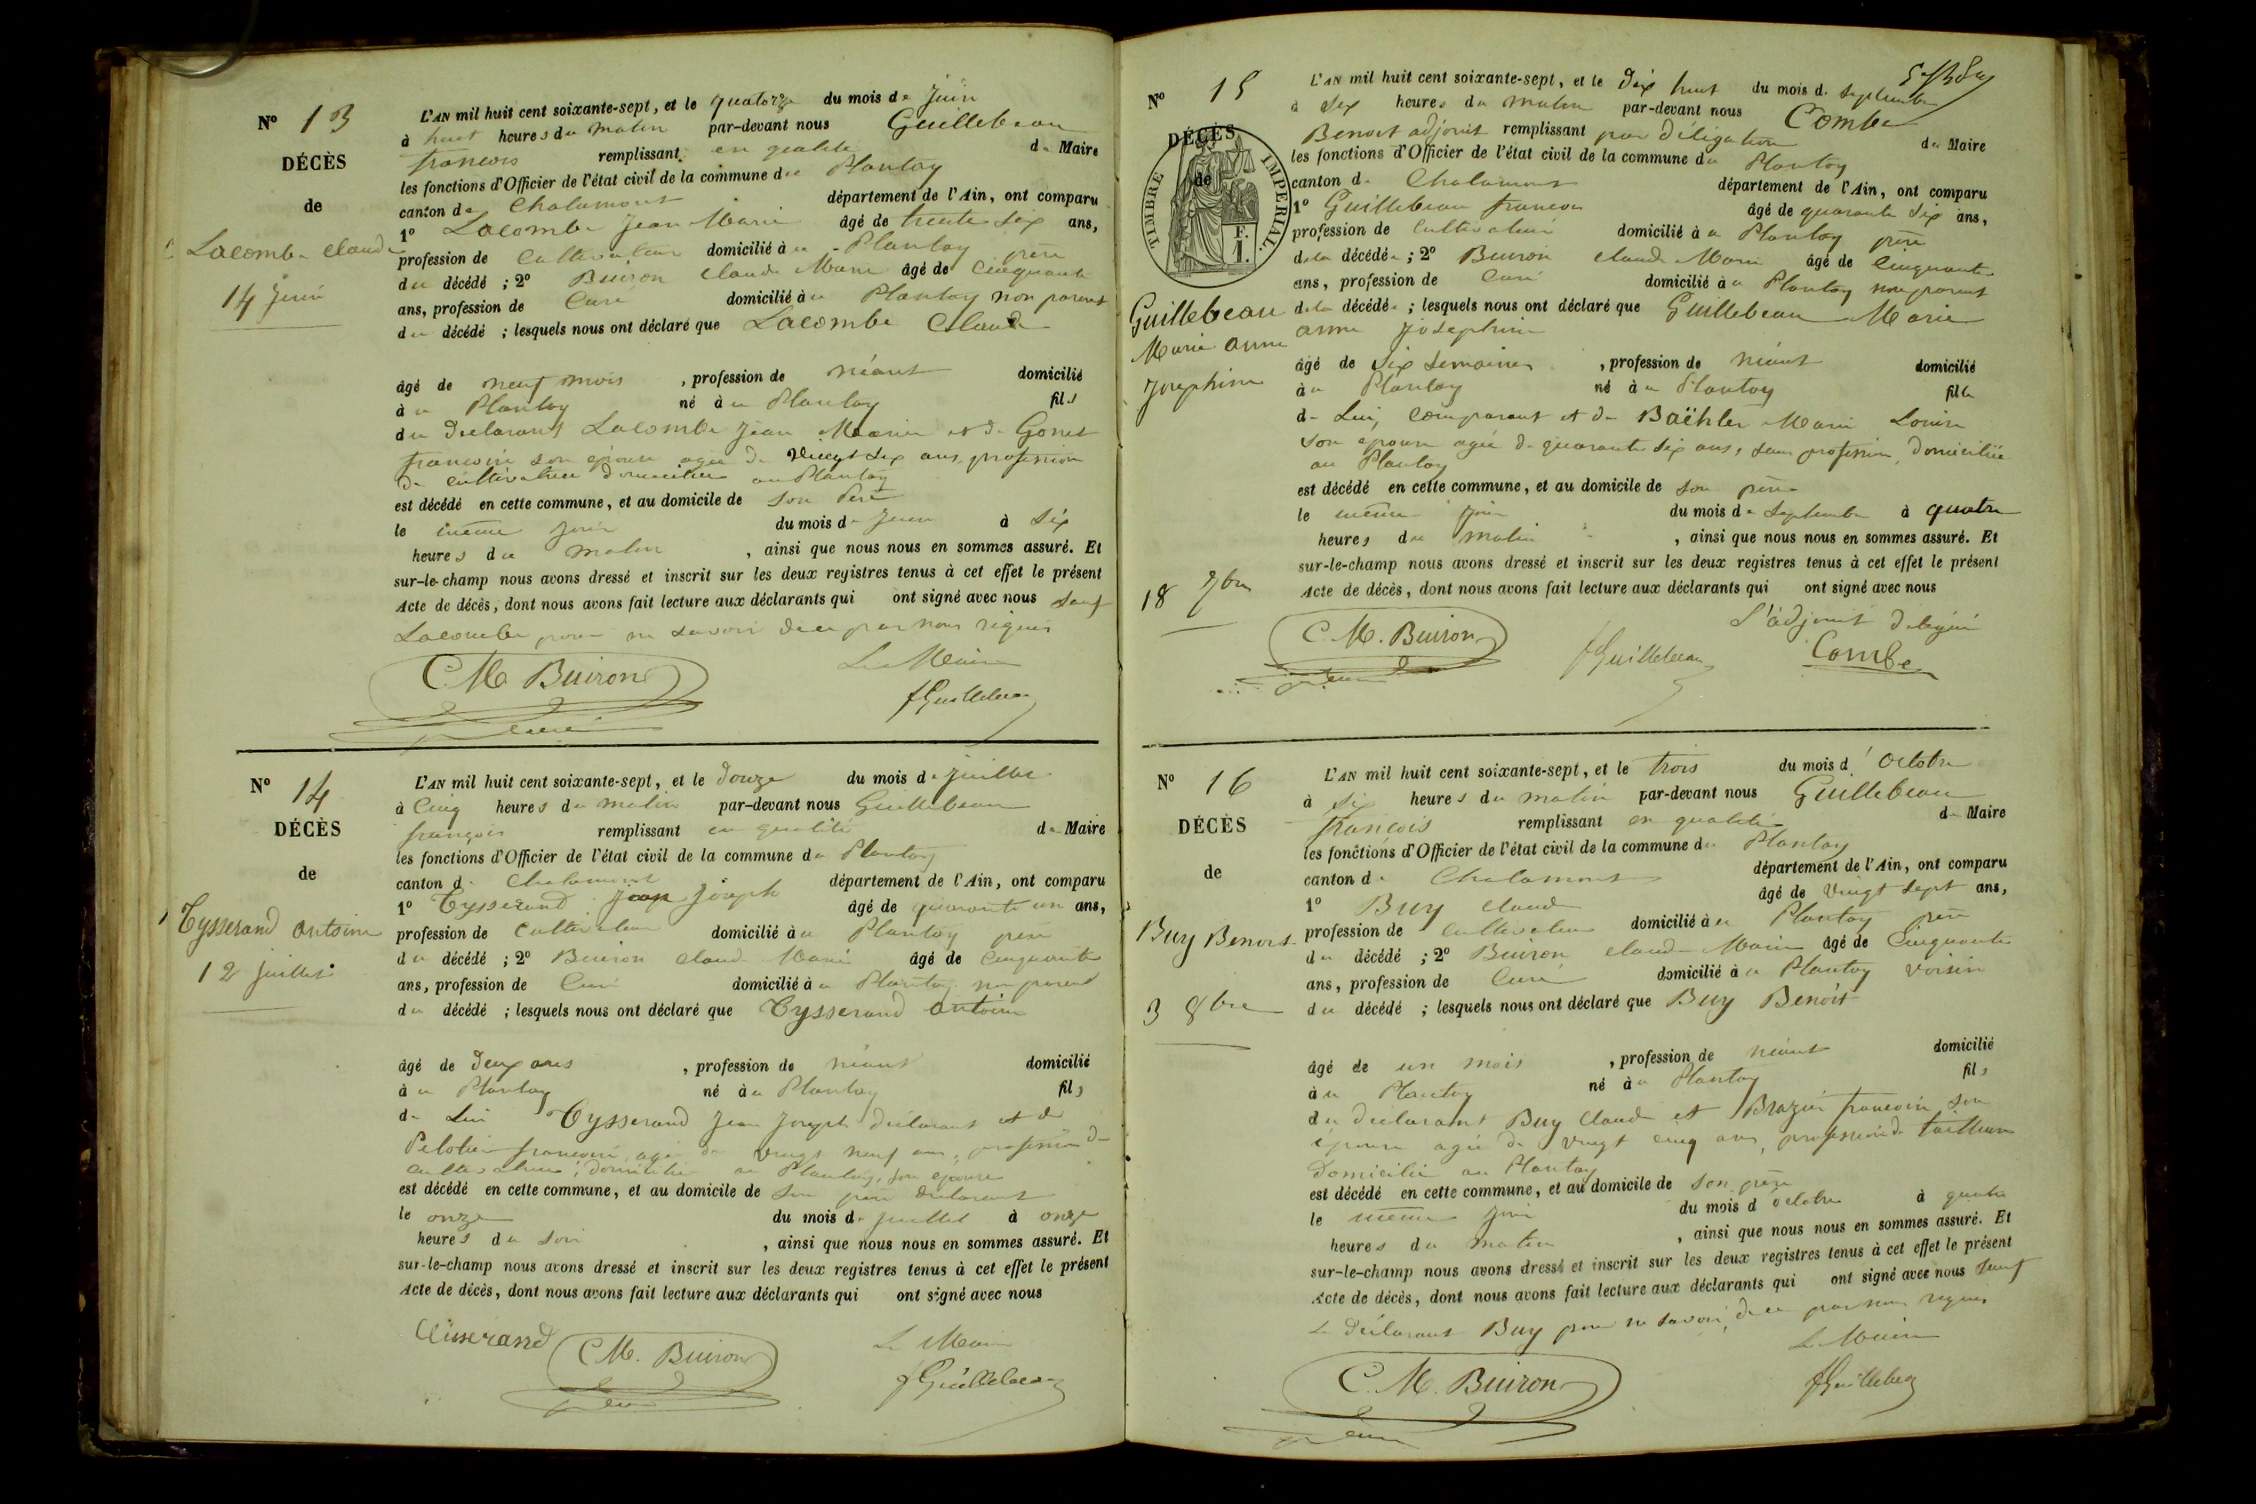 N° 13
DÉCÈS
de
Lacombe Claude
14 Juin
L'AN mil huit cent soixante-sept, et le quatorze du mois de Juin
à huit heures du matin par-devant nous Guillebeau
françois remplissant en qualité de Maire
les fonctions d'Officier de l'état civil de la commune du Plantay
canton de Chalamont département de l'Ain, ont comparu
1° Lacombe Jean Marie âgé de trente six ans,
profession de Cultivateur domicilié à u Plantay père
du décédé ; 2° Buiron Claude Marie âgé de Cinquante
ans, profession de Curé domicilié à u Plantay non parent
du décédé ; lesquels nous ont déclaré que Lacombe Claude
âgé de neuf mois , profession de néant domicilié
à u Plantay né à u Plantay fils
du déclarant Lacombe Jean Marie et de Gonet
francoise son épouse agée de vingt six ans, profession
de cultivatrice domiciliée au Plantay
est décédé en cette commune, et au domicile de son père
le même jour du mois de Juin à Six
heures du matin , ainsi que nous nous en sommes assuré. Et
sur-le-champ nous avons dressé et inscrit sur les deux registres tenus à cet effet le présent
Acte de décès, dont nous avons fait lecture aux déclarants qui ont signé avec nous sauf
Lacombe pour ne savoir de ce par nous requis
C M Buiron
curé
Le Maire
f Guillebeau
N° 14
DÉCÈS
de
Tysserand antoine
12 Juillet
L'AN mil huit cent soixante-sept, et le Douze du mois de Juillet
à Cinq heures du matin par-devant nous Guillebeau
françois remplissant en qualité de Maire
les fonctions d'Officier de l'état civil de la commune du Plantay
canton de Chalamont département de l'Ain, ont comparu
1° Tysserand Jean Joseph âgé de quarante un ans,
profession de Cultivateur domicilié à u Plantay père
du décédé ; 2° Buiron Claude Marie âgé de Cinquante
ans, profession de Curé domicilié à u Plantay non parent
du décédé ; lesquels nous ont déclaré que Tysserand antoine
âgé de Deux ans , profession de néant domicilié
à u Plantay né à u Plantay fils
de Lui Tysserand Jean Joseph déclarant et de
francoise agée de vingt neuf ans, profession de
cultivatrice, domiciliée au Plantay, son épouse
est décédé en cette commune, et au domicile de son père déclarant
le onze du mois de Juillet à onze
heures du soir , ainsi que nous nous en sommes assuré. Et
sur-le-champ nous avons dressé et inscrit sur les deux registres tenus à cet effet le présent
Acte de décès, dont nous avons fait lecture aux déclarants qui ont signé avec nous
C. M. Buiron
curé
Le Maire
f Guillebeau
N° 15
DÉCÈS
de
TIMBRE IMPERIAL.
F.
1.
Guillebeau
Marie anne
Josephine
18 7bre
L'AN mil huit cent soixante-sept, et le Dix huit du mois de Septembre
à Six heures du matin par-devant nous Combe
Benoit adjoint remplissant par déligation de Maire
les fonctions d'Officier de l'état civil de la commune du Plantay
canton de Chalamont département de l'Ain, ont comparu
1° Guillebeau francois âgé de quarante six ans,
profession de Cultivateur domicilié à u Plantay père
de la décédée ; 2° Buiron Claude Marie âgé de Cinquante
ans, profession de Curé domicilié à u Plantay non parent
de la décédée ; lesquels nous ont déclaré que Guillebeau Marie
anne Josephine
âgé de Six Semaines , profession de néant domicilié
à u Plantay né à u Plantay fille
de Lui, comparant et de Baëhler Marie Louise
son épouse agée de quarante six ans, sans profession, domiciliée
au Plantay
est décédé en cette commune, et au domicile de son père
le même jour du mois de Septembre à quatre
heures du matin , ainsi que nous nous en sommes assuré. Et
sur-le-champ nous avons dressé et inscrit sur les deux registres tenus à cet effet le présent
Acte de décès, dont nous avons fait lecture aux déclarants qui ont signé avec nous
L'adjoint délégué
C. M. Buiron
curé
f Guillebeau
Combe
N° 16
DÉCÈS
de
Buy Benoit
3 8bre
L'AN mil huit cent soixante-sept, et le trois du mois d'Octobre
à Six heures du matin par-devant nous Guillebeau
françois remplissant en qualité de Maire
les fonctions d'Officier de l'état civil de la commune du Plantay
canton de Chalamont département de l'Ain, ont comparu
1° Buy Claude âgé de vingt sept ans,
profession de cultivateur domicilié à u Plantay père
du décédé ; 2° Buiron Claude Marie âgé de Cinquante
ans, profession de Curé domicilié à u Plantay voisin
du décédé ; lesquels nous ont déclaré que Buy Benoit
âgé de un mois , profession de néant domicilié
à u Plantay né à u Plantay fils
du déclarant Buy Claude et Brazier francoise son
épouse agée de vingt cinq ans, profession de tailleuse
domiciliée au Plantay
est décédé en cette commune, et au domicile de son père
le même jour du mois d'octobre à quatre
heures du matin , ainsi que nous nous en sommes assuré. Et
sur-le-champ nous avons dressé et inscrit sur les deux registres tenus à cet effet le présent
Acte de décès, dont nous avons fait lecture aux déclarants qui ont signé avec nous sauf
Le Déclarant Buy pour ne savoir, de ce par nous requis
Le Maire
C. M. Buiron
curé
f Guillebeau